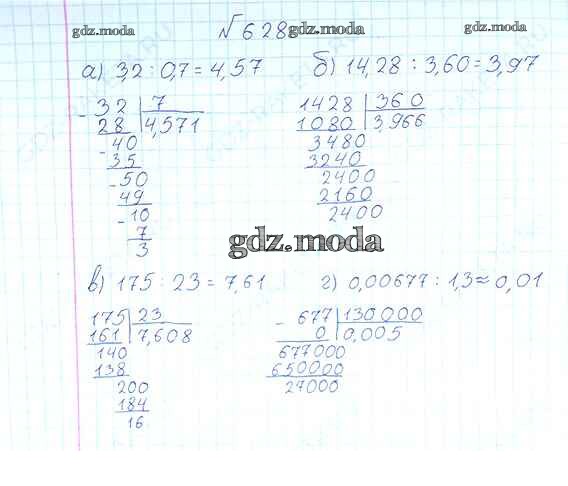 gdz.moda № 628 gdz.moda gdz.moda
а) 3,2 : 0,7 = 4,57 б) 14,28 : 3,60 = 3,97
- 32 | 7
28 | 4,571
- 40
35
- 50
49
- 10
7
3
1428 | 360
1080 | 3,966
3480
3240
2400
2160
2400
gdz.moda
в) 175 : 23 = 7,61 г) 0,00677 : 1,3 ≈ 0,01
175 | 23
161 | 7,608
140
138
200
184
16
- 677 | 130000
0 | 0,005
677000
650000
27000